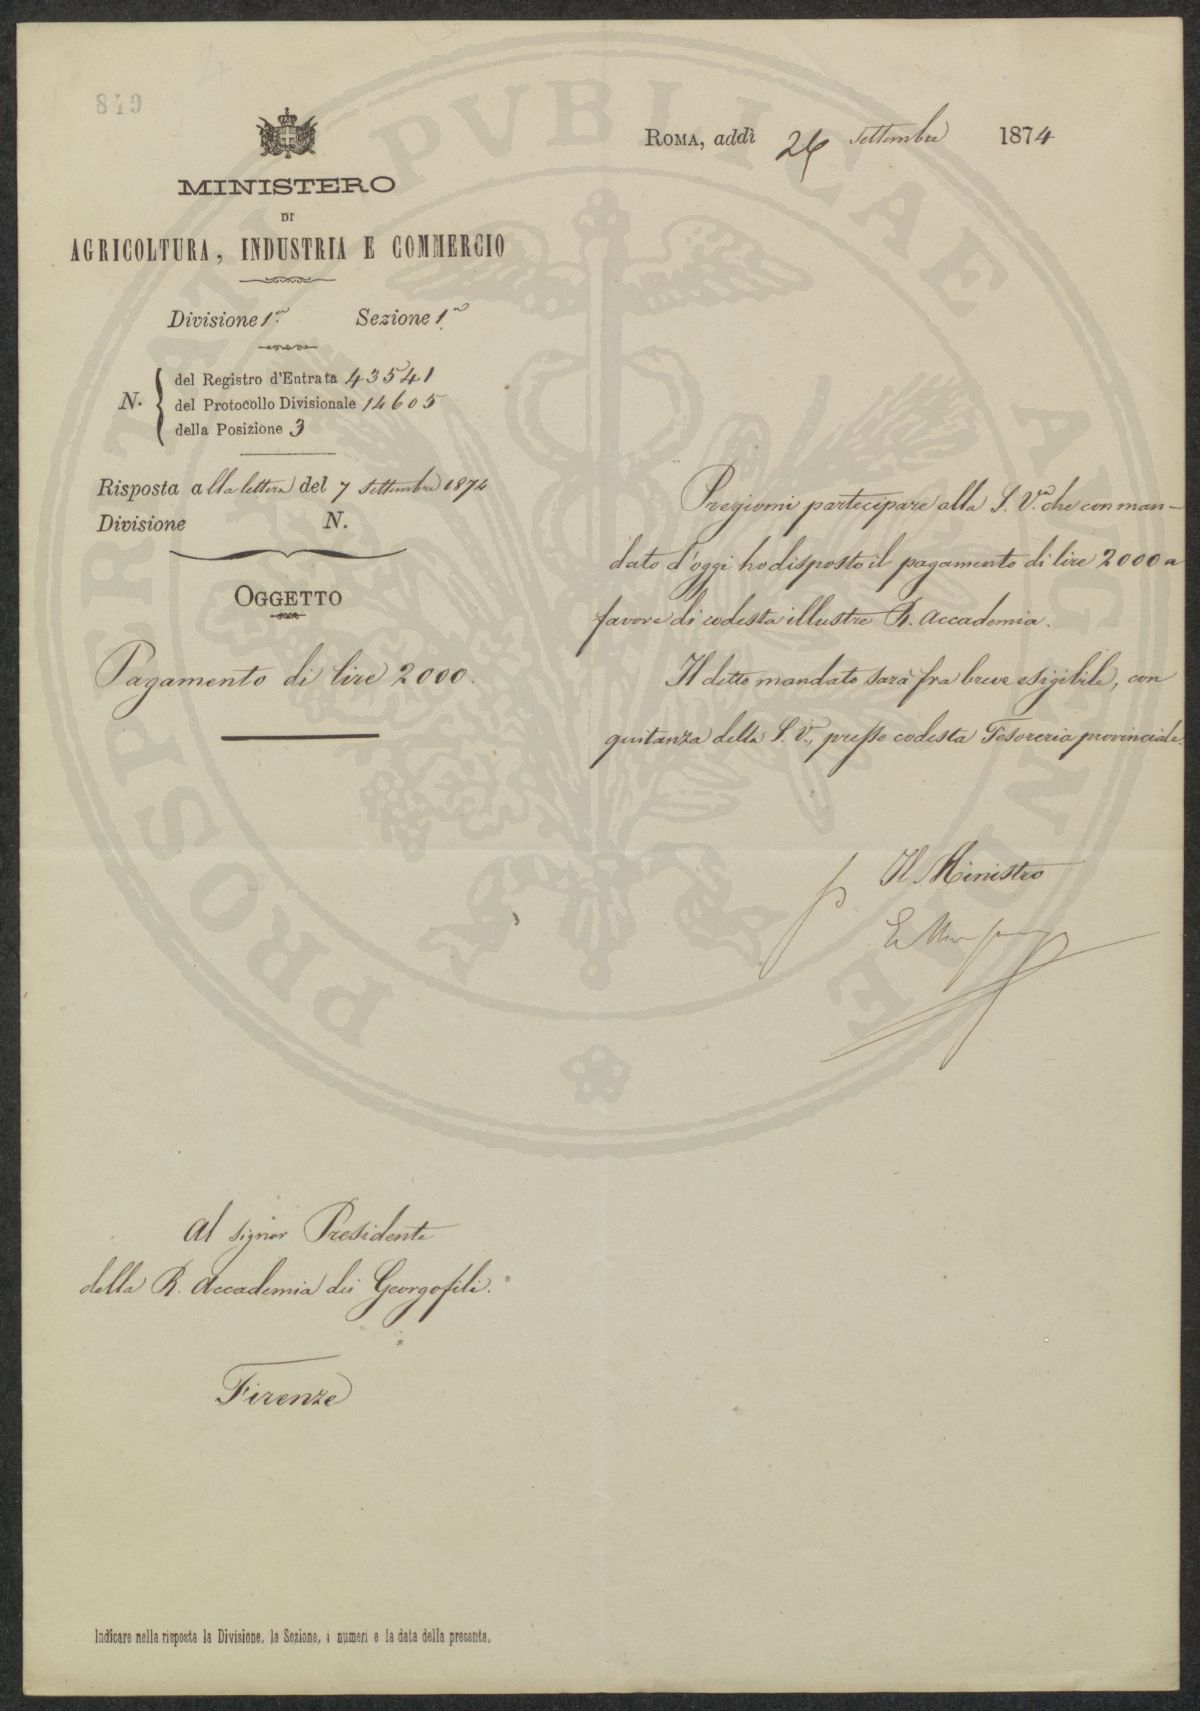 849
ROMA, addì 26 Settembre 1874
MINISTERO
DI
AGRICOLTURA, INDUSTRIA E COMMERCIO
Divisione 1ª Sezione 1ª
N. del Registro d'Entrata 43541
del Protocollo Divisionale 14605
della Posizione 3
Risposta alla lettera del 7 Settembre 1874
Divisione N.
OGGETTO
Pagamento di lire 2000.
Pregiomi partecipare alla S. V.ª che con man-
dato d'oggi ho disposto il pagamento di lire 2000 a
favore di codesta illustre R. Accademia.
Il detto mandato sarà fra breve esigibile, con
quitanza della S. V., presso codesta Tesoreria provinciale.
Il Ministro
Al signor Presidente
della R. Accademia dei Georgofili.
Firenze
Indicare nella risposta la Divisione, la Sezione, i numeri e la data della presente.
PROSPERITATI PVBLICAE AVGENDAE